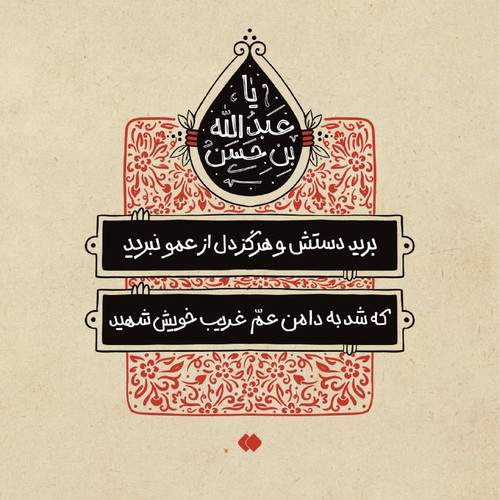 یا
عَبدُ الله
بْنِ حَسَنْ
برید دستش و هرگز دل از عمو نبرید
که شد به دامن عمّ غریب خویش شهید